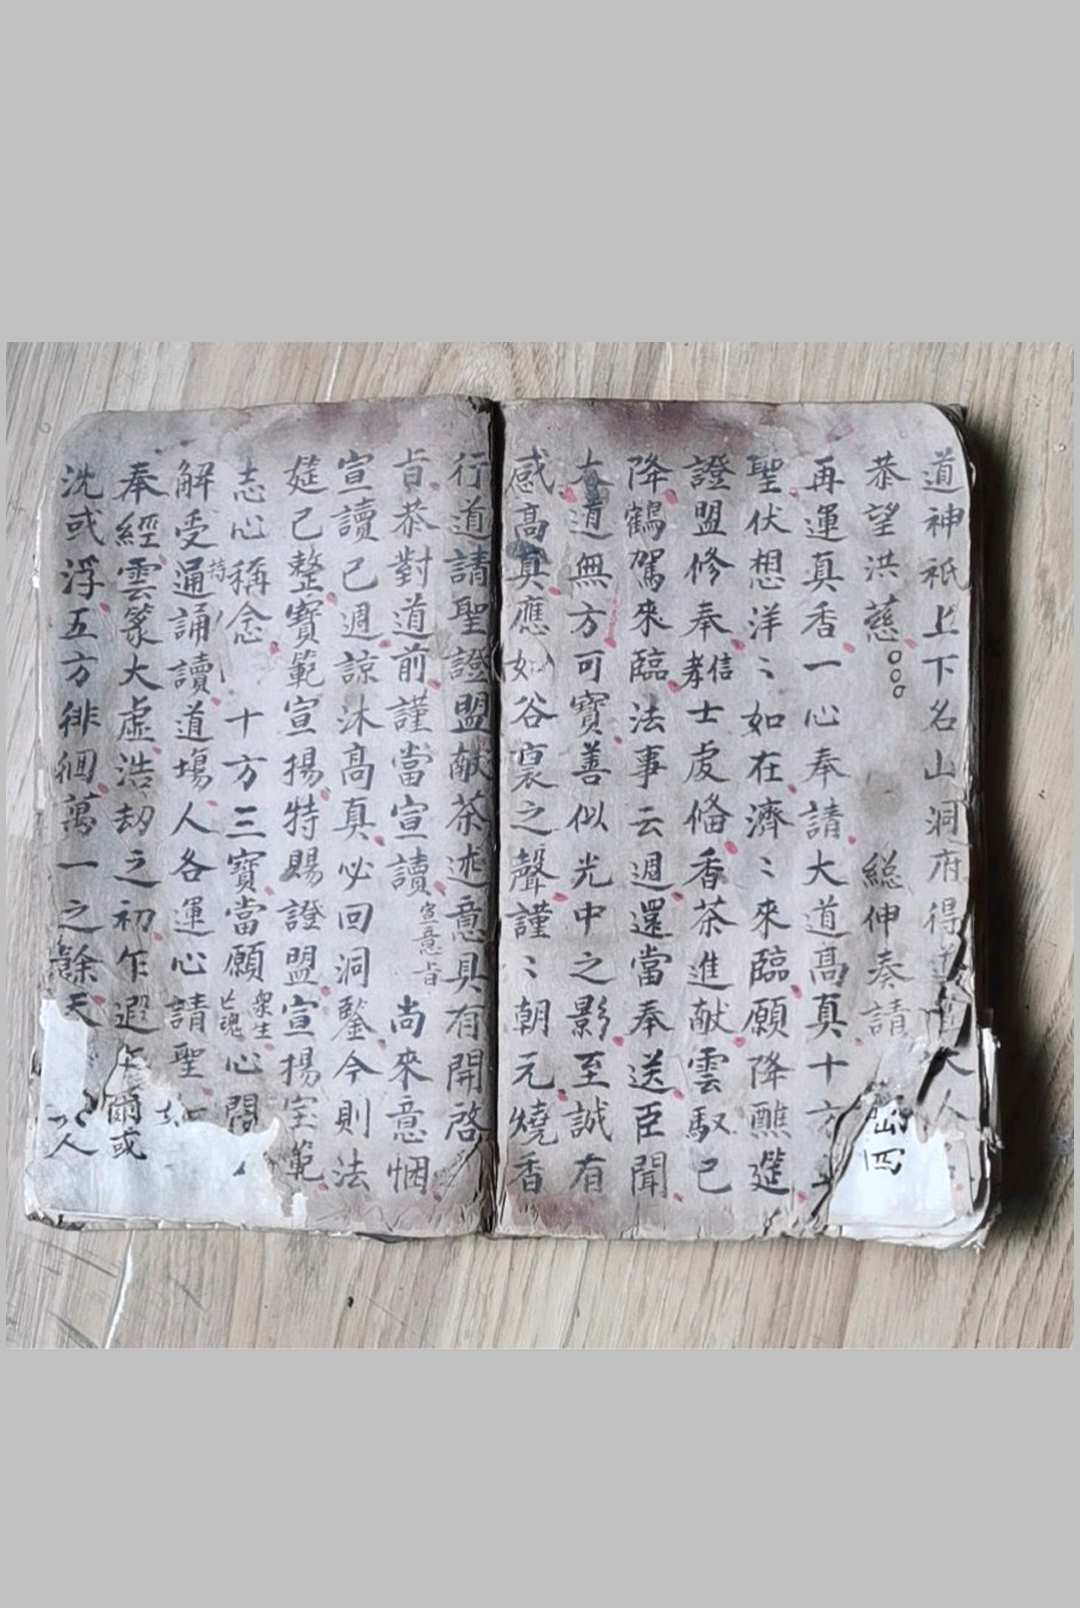 道神祇上下名山洞府得道大人
恭望洪慈 総伸奏請
再運真香一心奉請大道高真十方
聖伏想洋〻如在濟〻來臨願降醮筵
證盟修奉信孝士虔俻香茶進献雲馭已
降鶴駕來臨法事云週還當奉送臣聞
大道無方可寶善似光中之影至誠有
感高真應如谷裏之聲謹〻朝元燒香
行道請聖證盟献茶述意具有開啓
旨恭對道前謹當宣讀宣意旨尚來意悃
宣讀已週諒沐高真必回洞鑒今則法
筵已整寳範宣揚特賜證盟宣揚宝範
志心稱念 十方三寶當願衆生亡魂心開
解受持通誦讀道場人各運心請聖
奉經雲篆大虛浩刼之初乍遐乍爾或
沈或浮五方徘徊萬一之餘天